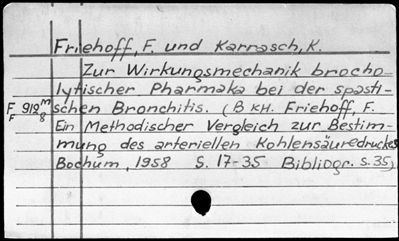 Friehoff, F. und Karrasch, K.
Zur Wirkungsmechanik brocho-
lytischer Pharmaka bei der spasti-
F 912 m schen Bronchitis. (В кн. Friehoff, F.
F 8 Ein Methodischer Vergleich zur Bestim-
mung des arteriellen Kohlensäuredruckes
Bochum, 1958 S. 17-35 Bibliogr. S. 35)